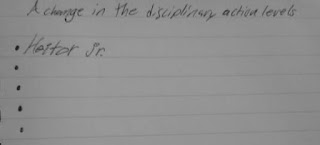 A change in the disciplinary action levels
• Hestor Jr.
•
•
•
•